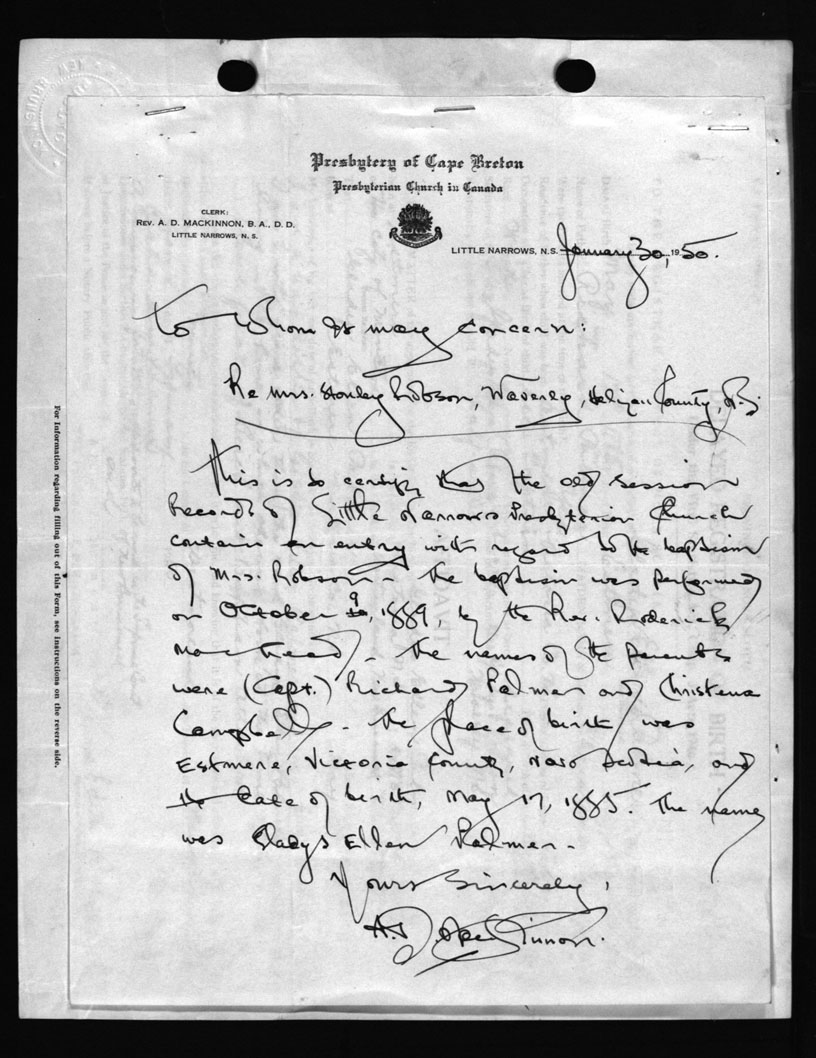 Presbytery of Cape Breton
Presbyterian Church in Canada
CLERK:
REV. A. D. MACKINNON, B. A., D. D.
LITTLE NARROWS, N. S.
LITTLE NARROWS, N.S. January 30, 1950.
To Whom It may Concern:
Re Mrs. Stanley Robson, Waverly, Halifax County, N.S.
This is to certify that the old session
Records of Little Narrows Presbyterian Church
contain an entry with regard to the baptism
of Mrs. Robson - The baptism was performed
on October 9, 1889, by the Rev. Roderick
- The names of the parents
were (Capt.) Richard Palmer and Christena
Campbell - The place of birth was
Estmere, Victoria County, Nova Scotia, and
the date of birth, May 17, 1885. The name
was Gladys Ellen Palmer -
Yours Sincerely,
A.D. MacKinnon.
For Information regarding filling out of this Form, see Instructions on the reverse side.